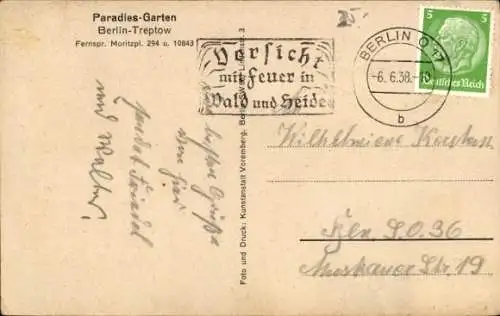 Paradies-Garten
Berlin-Treptow
Fernspr. Moritzpl. 294 u. 10843
Vorsicht
mit Feuer in
Wald und Heide
BERLIN O 17
-6.6.38.
b
5 5
Deutsches Reich
Die besten Grüße
von hier
sendet Friedel
und Walter.
Foto und Druck: Kunstanstalt Voremberg, Berlin SW 68, 3
Wilhelmiene
Bln. S.O. 36
Muskauer Str. 19